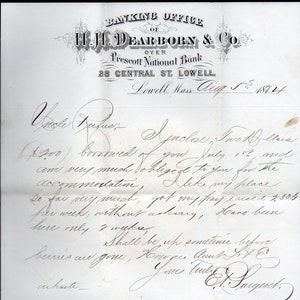 BANKING OFFICE
OF
H. H. DEARBORN & CO.
OVER
Prescott National Bank
28 CENTRAL ST. LOWELL.
Lowell, Mass. Aug 5th 1874
Uncle Rufus,
I enclose Two Dollars
($2.00) borrowed of you July 1st and
am very much obliged to you for the
accommodation, I like my place
so far very much, got my pay raised 2.50
per week, without asking, Have been
here only 2 weeks,
Shall be up sometime before
berries are gone, Aunt
Yours Truly
in haste E. Sargent